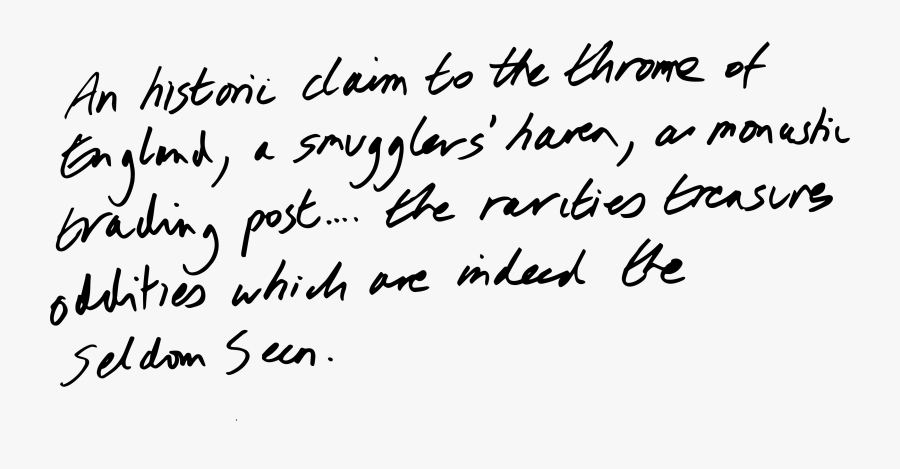 An historic claim to the throne of
England, a smugglers' haven, a monastic
trading post.... the rarities treasures
oddities which are indeed the
Seldom Seen.